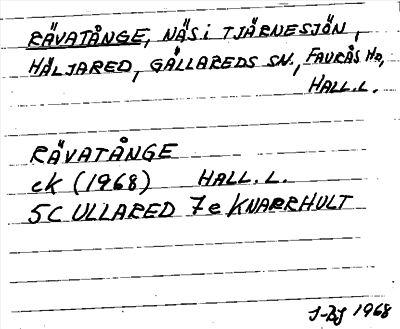 RÄVATÅNGE, NÄS i TJÄRNESJÖN,
HÄLJARED, GÄLLAREDS SN., FAURÅS HD,
HALL.L.
RÄVATÅNGE
ek (1968) HALL.L.
5C ULLARED 7e KNARRHULT
J-BJ 1968